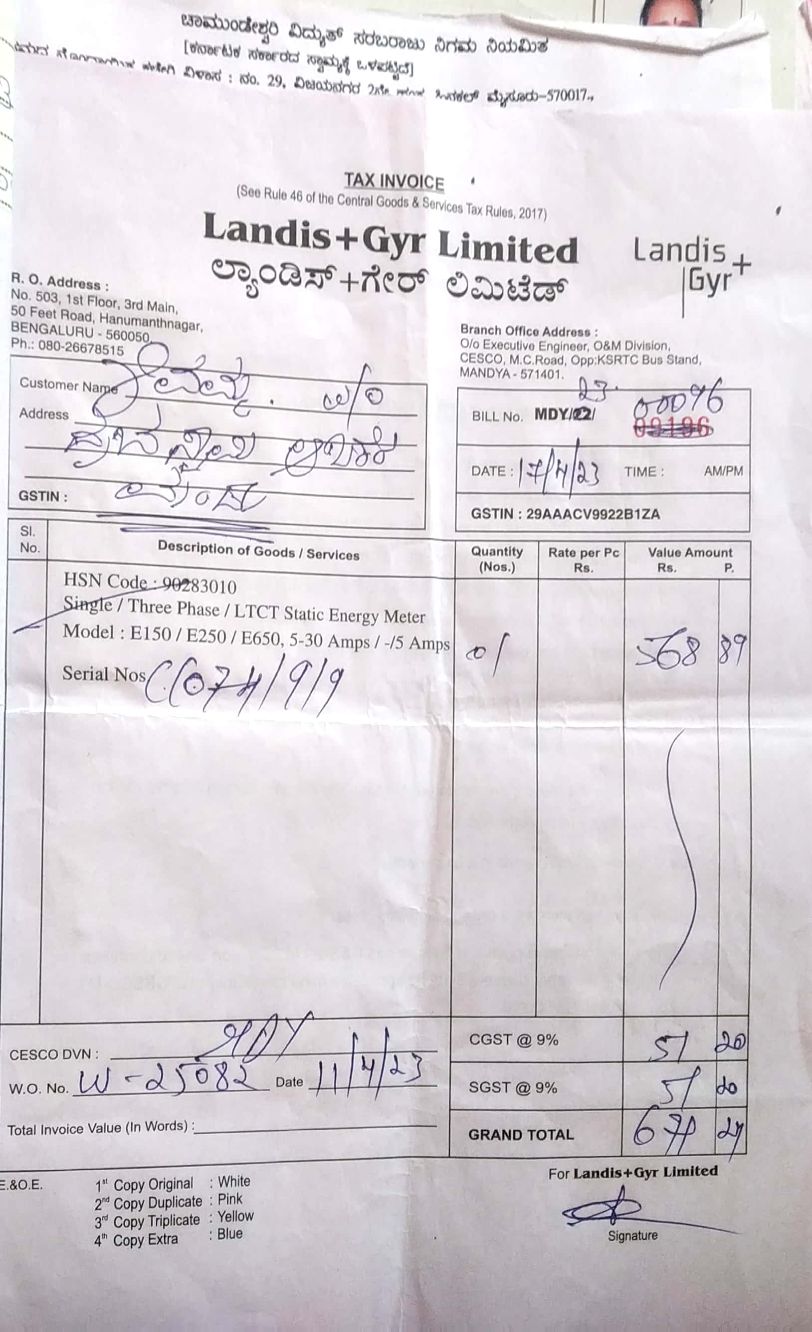 ಚಾಮುಂಡೇಶ್ವರಿ ವಿದ್ಯುತ್ ಸರಬರಾಜು ನಿಗಮ ನಿಯಮಿತ
[ಕರ್ನಾಟಕ ಸರ್ಕಾರದ ಸ್ವಾಮ್ಯಕ್ಕೆ ಒಳಪಟ್ಟಿದೆ]
ವಿಳಾಸ : ನಂ. 29, ವಿಜಯನಗರ 2ನೇ ಹಿನಕಲ್ ಮೈಸೂರು-570017.,
TAX INVOICE
(See Rule 46 of the Central Goods & Services Tax Rules, 2017)
Landis+Gyr Limited
ಲ್ಯಾಂಡಿಸ್+ಗೇರ್ ಲಿಮಿಟೆಡ್
Landis+
Gyr
R. O. Address :
No. 503, 1st Floor, 3rd Main,
50 Feet Road, Hanumanthnagar,
BENGALURU - 560050
Ph.: 080-26678515
Branch Office Address :
O/o Executive Engineer, O&M Division,
CESCO, M.C.Road, Opp:KSRTC Bus Stand,
MANDYA - 571401.
Customer Name
Address
GSTIN :
23
BILL No. MDY/22/ 00096
09196
DATE : 17/4/23 TIME : AM/PM
GSTIN : 29AAACV9922B1ZA
Sl. No. Description of Goods / Services Quantity (Nos.) Rate per Pc Rs. Value Amount Rs. P.
HSN Code : 90283010
Single / Three Phase / LTCT Static Energy Meter
Model : E150 / E250 / E650, 5-30 Amps / -/5 Amps 01 568 89
Serial Nos
CESCO DVN : MDY
W.O. No. W-25082 Date 11/4/23
Total Invoice Value (In Words) :
CGST @ 9% 51 20
SGST @ 9% 51 20
GRAND TOTAL 671
E.&O.E.
1st Copy Original : White
2nd Copy Duplicate : Pink
3rd Copy Triplicate : Yellow
4th Copy Extra : Blue
For Landis+Gyr Limited
Signature